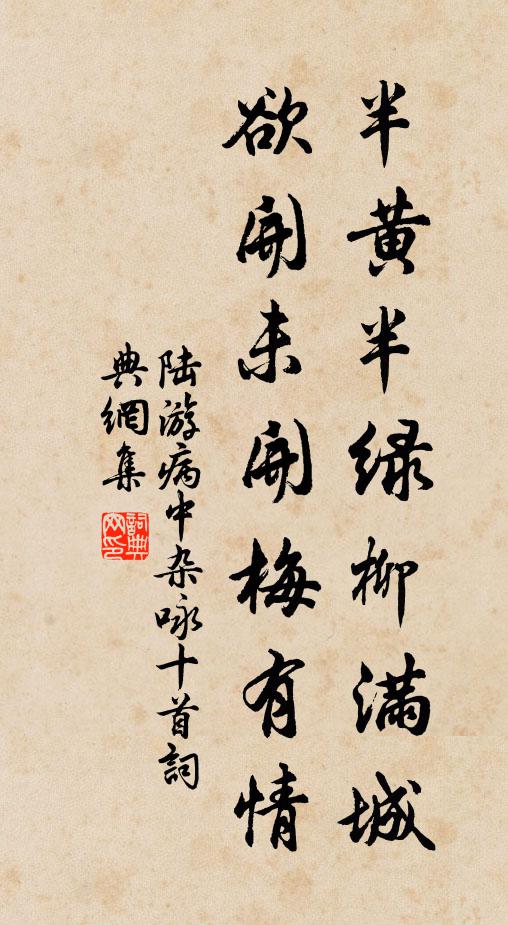 半黄半绿柳满城
欲开未开梅有情
陆游病中杂咏十首詞
典網集
詞典网印